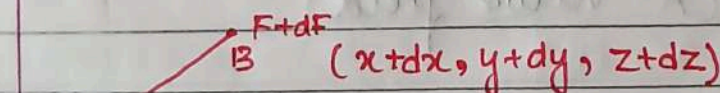 F+dF
B (x+dx, y+dy, z+dz)